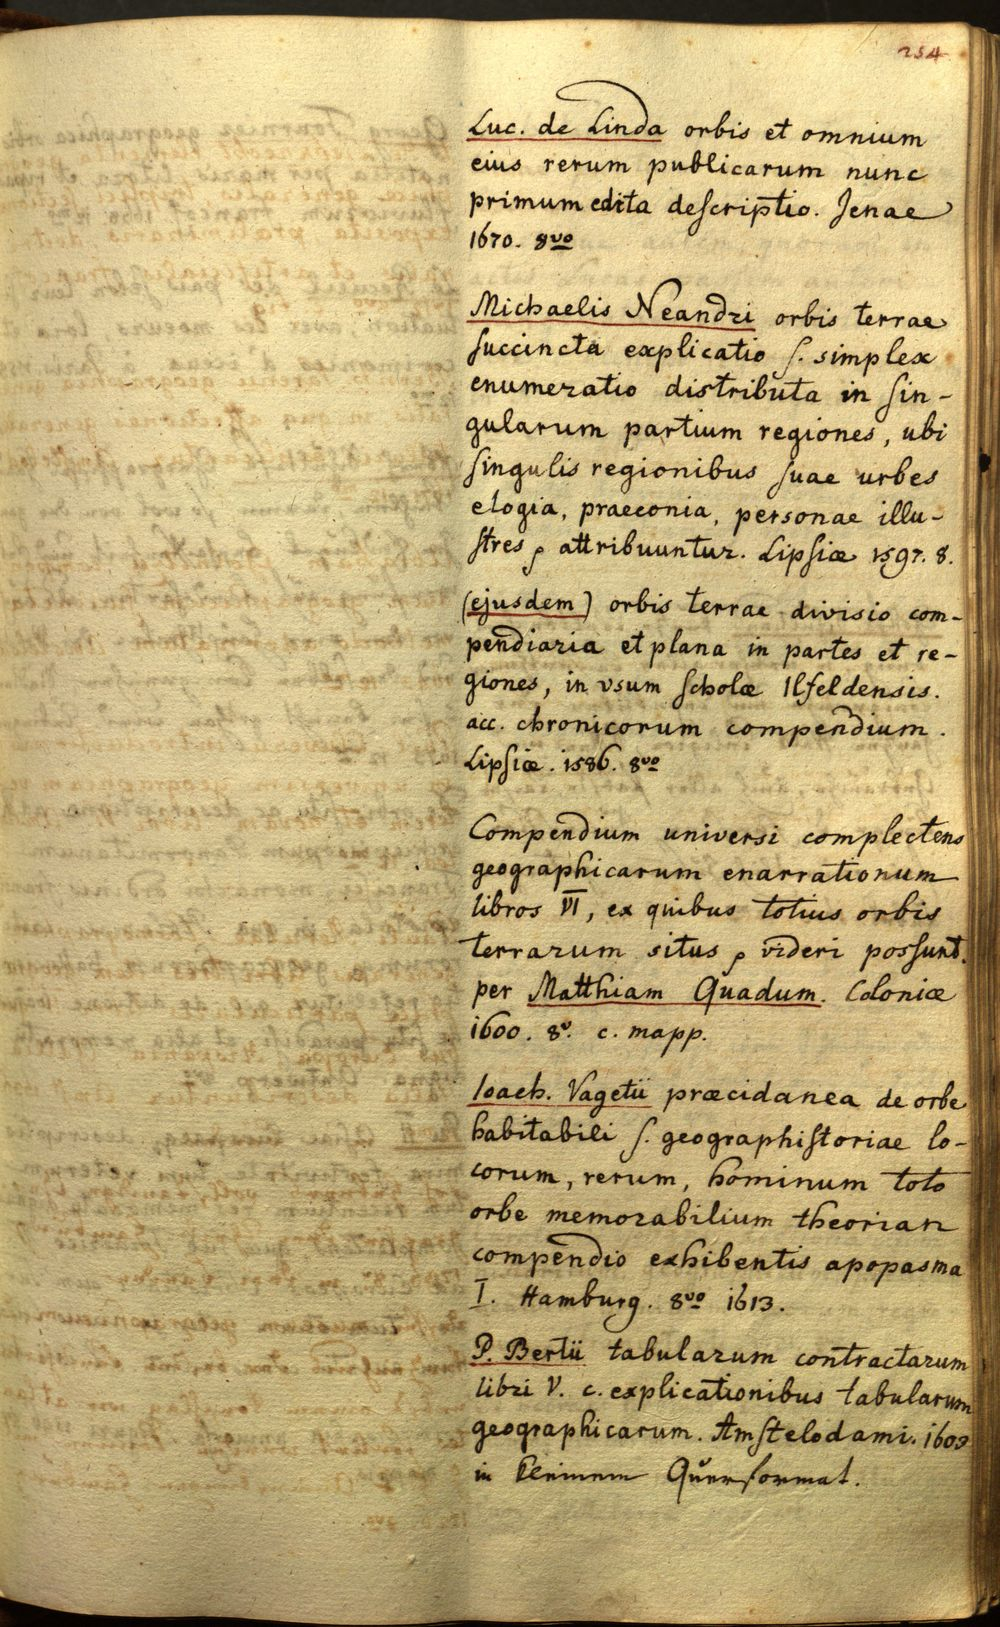 254
Luc. de Linda orbis et omnium
eius rerum publicarum nunc
primum edita deſcriptio. Jenae
1670. 8vo
Michaelis Neandri orbis terrae
ſuccincta explicatio ſ. simplex
enumeratio distributa in ſin-
gularum partium regiones, ubi
ſingulis regionibus ſuae urbes
elogia, praeconia, personae illu-
ſtres p attribuuntur. Lipſiæ 1597. 8.
(ejusdem) orbis terrae divisio com-
pendiaria et plana in partes et re-
giones, in vsum ſcholæ Ilfeldensis.
acc. chronicorum compendium.
Lipſiæ. 1586. 8vo
Compendium universi complectens
geographicarum enarrationum
libros VI, ex quibus totius orbis
terrarum situs p videri posſunt.
per Matthiam Quadum. Coloniæ
1600. 8v. c. mapp.
Ioach. Vagetii præcidanea de orbe
habitabili ſ. geographiſtoriae lo-
corum, rerum, hominum toto
orbe memorabilium theorian
compendio exhibentis apopasma
I. Hamburg. 8vo 1613.
P. Bertii tabularum contractarum
libri V. c. explicationibus tabularum
geographicarum. Amſtelodami. 1603
in kleinem Querformat.